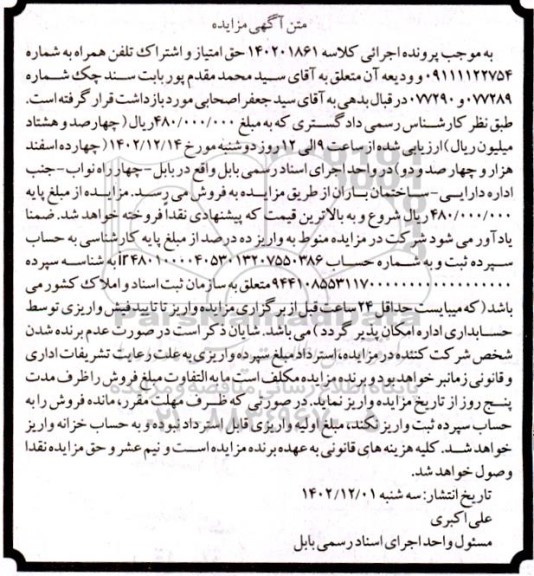 متن آگهی مزایده
به موجب پرونده اجرائی کلاسه ۱۴۰۲۰۱۸۶۱ حق امتیاز و اشتراک تلفن همراه به شماره
۰۹۱۱۱۱۲۲۷۵۴ و ودیعه آن متعلق به آقای سید محمد مقدم پور بابت سند چک شماره
۰۷۷۲۸۹ و ۰۷۷۲۹۰ در قبال بدهی به آقای سید جعفر اصحابی مورد بازداشت قرار گرفته است.
طبق نظر کارشناس رسمی دادگستری که به مبلغ ۴۸۰/۰۰۰/۰۰۰ ریال (چهارصد و هشتاد
میلیون ریال) ارزیابی شده از ساعت ۹ الی ۱۲ روز دوشنبه مورخ ۱۴۰۲/۱۲/۱۴ (چهارده اسفند
هزار و چهارصد و دو) در واحد اجرای اسناد رسمی بابل واقع در بابل-چهارراه نواب-جنب
اداره دارایی-ساختمان باران از طریق مزایده به فروش می رسد. مزایده از مبلغ پایه
۴۸۰/۰۰۰/۰۰۰ ریال شروع و به بالاترین قیمت که پیشنهادی نقدا فروخته خواهد شد. ضمنا
یادآور می شود شرکت در مزایده منوط به واریز ده درصد از مبلغ پایه کارشناسی به حساب
سپرده ثبت و به شماره حساب ir۴۸۰۱۰۰۰۰۴۰۵۳۰۱۳۲۰۷۵۵۰۳۸۶ به شناسه سپرده
۹۴۴۱۰۸۵۵۳۱۱۷۰۰۰۰۰۰۰۰۰۰۰۰۰۰۰۰۰۰ متعلق به سازمان ثبت اسناد و املاک کشور می
باشد (که میبایست حداقل ۲۴ ساعت قبل از برگزاری مزایده واریز تا تایید فیش واریزی توسط
حسابداری اداره امکان پذیر گردد) می باشد. شایان ذکر است در صورت عدم برنده شدن
شخص شرکت کننده در مزایده، استرداد مبلغ سپرده واریزی به علت رعایت تشریفات اداری
و قانونی زمانبر خواهد بود و برنده مزایده مکلف است مابه التفاوت مبلغ فروش را ظرف مدت
پنج روز از تاریخ مزایده واریز نماید. در صورتی که ظرف مهلت مقرر، مانده فروش را به
حساب سپرده ثبت واریز نکند، مبلغ اولیه واریزی قابل استرداد نبوده و به حساب خزانه واریز
خواهد شد. کلیه هزینه های قانونی به عهده برنده مزایده است و نیم عشر و حق مزایده نقدا
وصول خواهد شد.
تاریخ انتشار: سه شنبه ۱۴۰۲/۱۲/۰۱
علی اکبری
مسئول واحد اجرای اسناد رسمی بابل